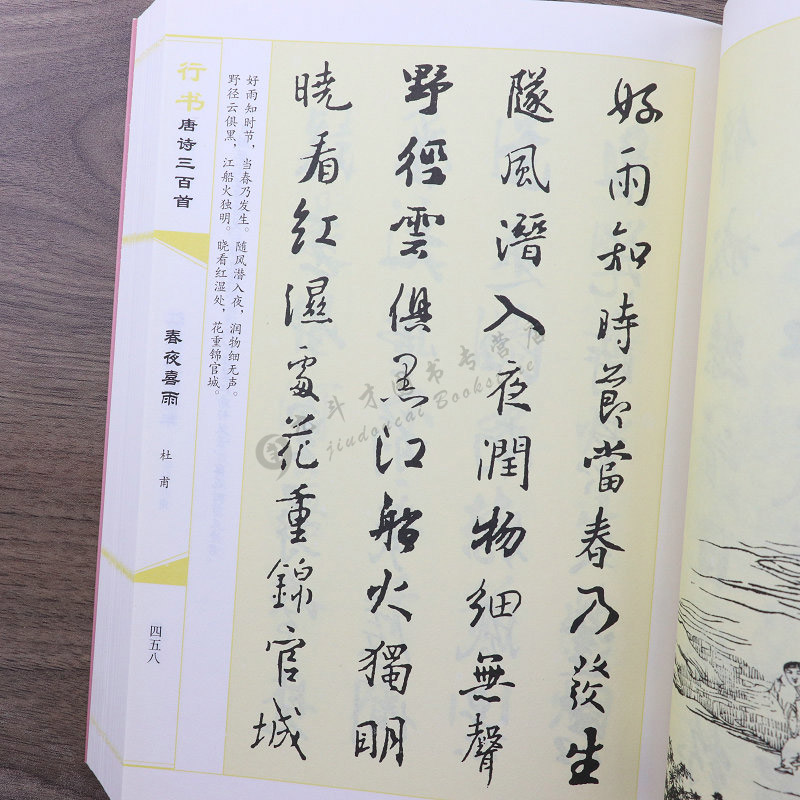 好雨知時節當春乃發生
隨風潛入夜潤物細無聲
野徑雲俱黑江船火獨明
曉看紅濕處花重錦官城
好雨知时节，当春乃发生。随风潜入夜，润物细无声。
野径云俱黑，江船火独明。晓看红湿处，花重锦官城。
行书唐诗三百首
春夜喜雨
杜甫
四五八